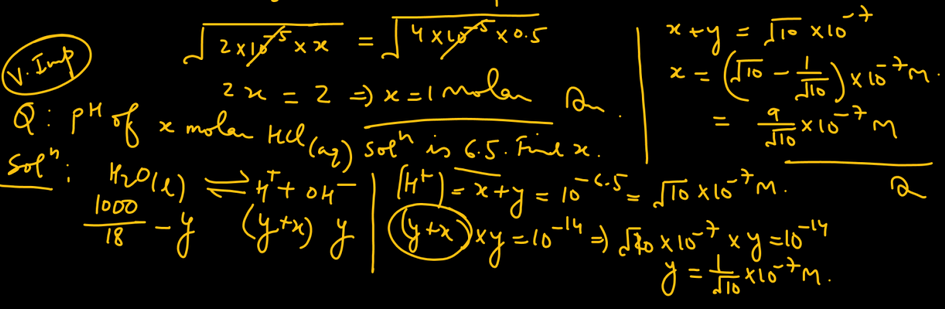 √(2×10⁻⁵ × x) = √(4×10⁻⁵ × 0.5)
2x = 2 ⇒ x = 1 molar
V. Imp
Q: pH of x molar HCl(aq) solⁿ is 6.5. Find x.
Solⁿ: H₂O(l) ⇌ H⁺ + OH⁻
1000/18 − y (y+x) y
[H⁺] = x+y = 10⁻⁶·⁵ = √10 × 10⁻⁷ M.
(y+x) × y = 10⁻¹⁴ ⇒ √10 × 10⁻⁷ × y = 10⁻¹⁴
y = 1/√10 × 10⁻⁷ M.
x+y = √10 × 10⁻⁷
x = (√10 − 1/√10) × 10⁻⁷ M.
= 9/√10 × 10⁻⁷ M